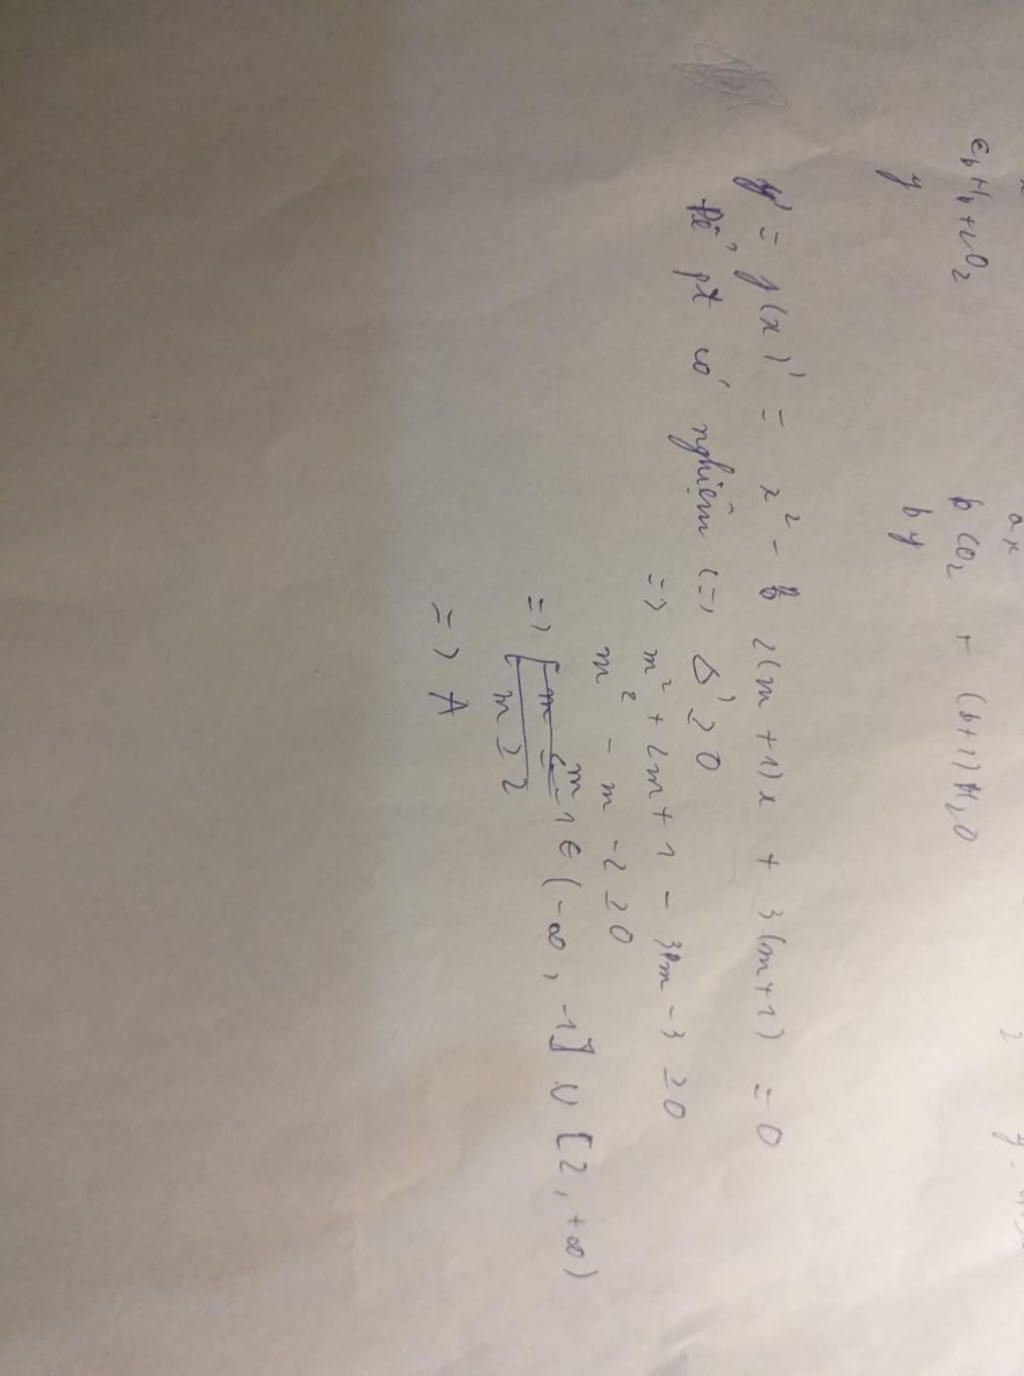 ax
C_bH_b+vO_2 bCO_2 + (b+1)H_2O
y by
y' = f(x)' = x² - 2(m+1)x + 3(m+1) = 0
Để pt có nghiệm (=) Δ' ≥ 0
=> m² + 2m + 1 - 3m - 3 ≥ 0
m² - m - 2 ≥ 0
=> m ∈ (-∞, -1] ∪ [2, +∞)
m ≥ 2
=> A